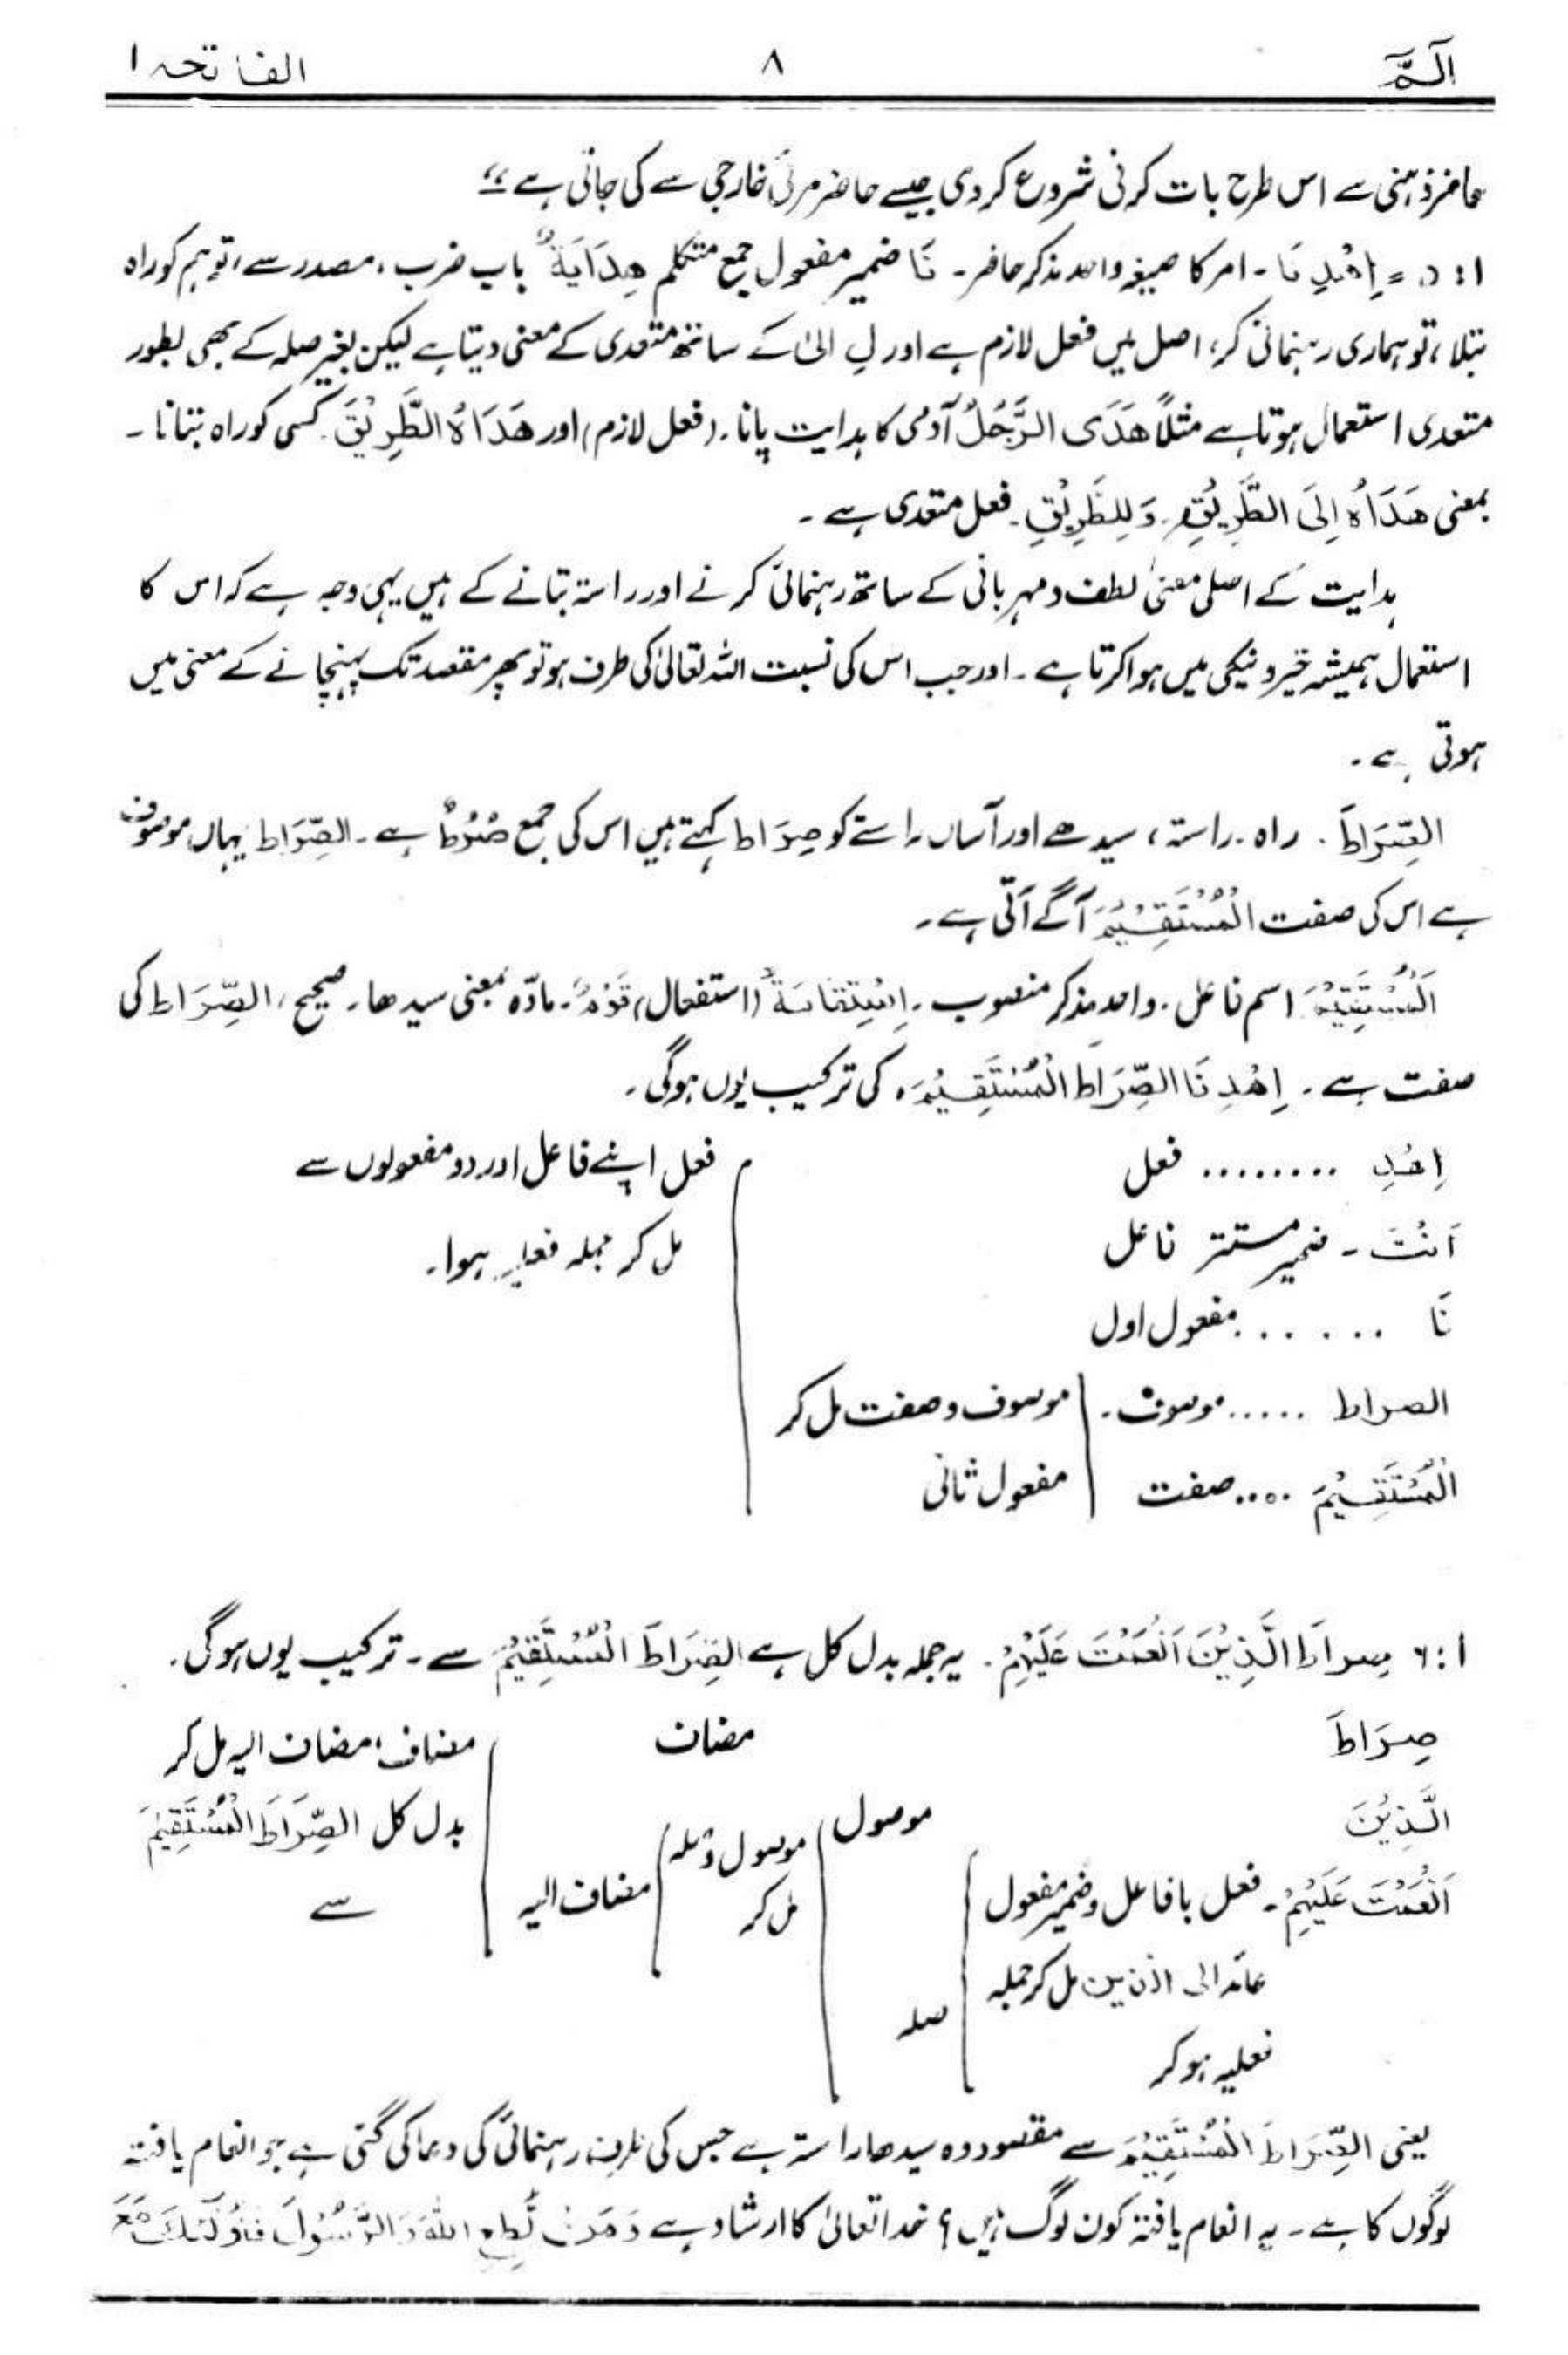 الٓمّٓ ۸ الفاتحہ ۱
حاضر ذہنی سے اس طرح بات کرنی شروع کردی جیسے حاضر مرئی خارجی سے کی جاتی ہے ،،
۱: ۵ = اِھْدِ نَا۔ امر کا صیغہ واحد مذکر حاضر۔ نَا ضمیر مفعول جمع متکلم ھِدَایَۃٌ باب ضرب، مصدر سے، تو ہم کو راہ
بتلا، تو ہماری رہنمائی کر، اصل میں فعل لازم ہے اور لِ الیٰ کے ساتھ متعدی کے معنی دیتا ہے لیکن بغیر صلہ کے بھی بطور
متعدی استعمال ہوتا ہے مثلاً ھَدَی الرَّجُلُ آدمی کا ہدایت پانا۔ (فعل لازم) اور ھَدَاہُ الطَّرِیْقَ۔ کسی کو راہ بتانا۔
بمعنی ھَدَاہُ اِلَی الطَّرِیْقِ۔ وَلِلطَّرِیْقِ۔ فعل متعدی ہے۔
ہدایت کے اصلی معنیٰ لطف و مہربانی کے ساتھ رہنمائی کرنے اور راستہ بتانے کے ہیں یہی وجہ ہے کہ اس کا
استعمال ہمیشہ خیر و نیکی میں ہوا کرتا ہے۔ اور جب اس کی نسبت اللہ تعالیٰ کی طرف ہو تو پھر مقصد تک پہنچانے کے معنی میں
ہوتی ہے۔
الصِّرَاطَ۔ راہ۔ راستہ، سیدھے اور آسان راستے کو صِرَاط کہتے ہیں اس کی جمع صُرُطٌ ہے۔ الصِّرَاط یہاں موصوف
ہے اس کی صفت الْمُسْتَقِیْمَ آگے آتی ہے۔
اَلْمُسْتَقِیْمَ اسم فاعل۔ واحد مذکر منصوب۔ اِسْتِقَامَۃٌ (استفعال) قَوْمٌ۔ مادّہ بمعنی سیدھا۔ صحیح، الصِّرَاط کی
صفت ہے۔ اِھْدِ نَا الصِّرَاطَ الْمُسْتَقِیْمَ۔ کی ترکیب یوں ہوگی۔
اِھْدِ ........ فعل فعل اپنے فاعل اور دو مفعولوں سے
اَنْتَ۔ ضمیر مستتر فاعل مل کر جملہ فعلیہ ہوا۔
نَا ...... مفعول اول
الصراط ..... موصوف۔ موصوف و صفت مل کر
الْمُسْتَقِیْمَ .... صفت مفعول ثانی
۱: ۶ صِرَاطَ الَّذِیْنَ اَنْعَمْتَ عَلَیْہِمْ۔ یہ جملہ بدل کل ہے الصِّرَاطَ الْمُسْتَقِیْمَ سے۔ ترکیب یوں ہوگی۔
صِرَاطَ مضاف مضاف، مضاف الیہ مل کر
الَّذِیْنَ موصول موصول و صلہ بدل کل الصِّرَاطَ الْمُسْتَقِیْمَ
اَنْعَمْتَ عَلَیْہِمْ۔ فعل با فاعل و ضمیر مفعول مل کر مضاف الیہ سے
عائد الی الذین مل کر جملہ صلہ
فعلیہ ہو کر
یعنی الصِّرَاطَ الْمُسْتَقِیْمَ سے مقصود وہ سیدھا راستہ ہے جس کی طرف رہنمائی کی دعا کی گئی ہے جو انعام یافتہ
لوگوں کا ہے۔ یہ انعام یافتہ کون لوگ ہیں؟ خدا تعالیٰ کا ارشاد ہے وَمَنْ یُّطِعِ اللّٰہَ وَالرَّسُوْلَ فَاُولٰٓئِكَ مَعَ